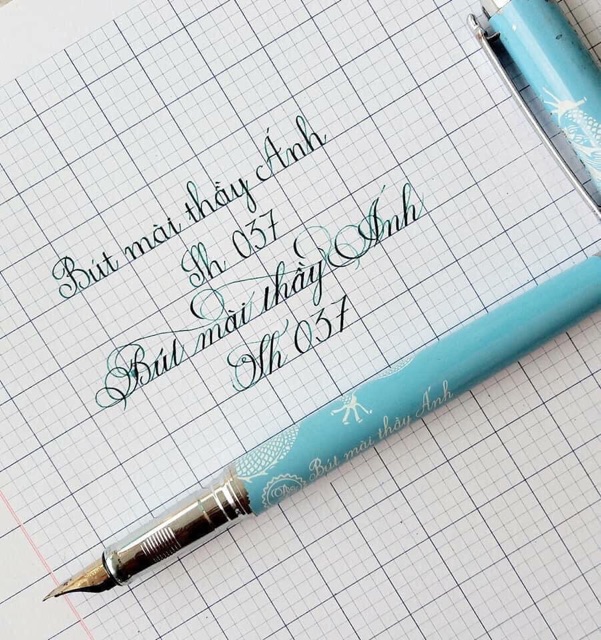 Bút mài thầy Ánh
Sh 037
Bút mài thầy Ánh
Sh 037
Bút mài thầy Ánh